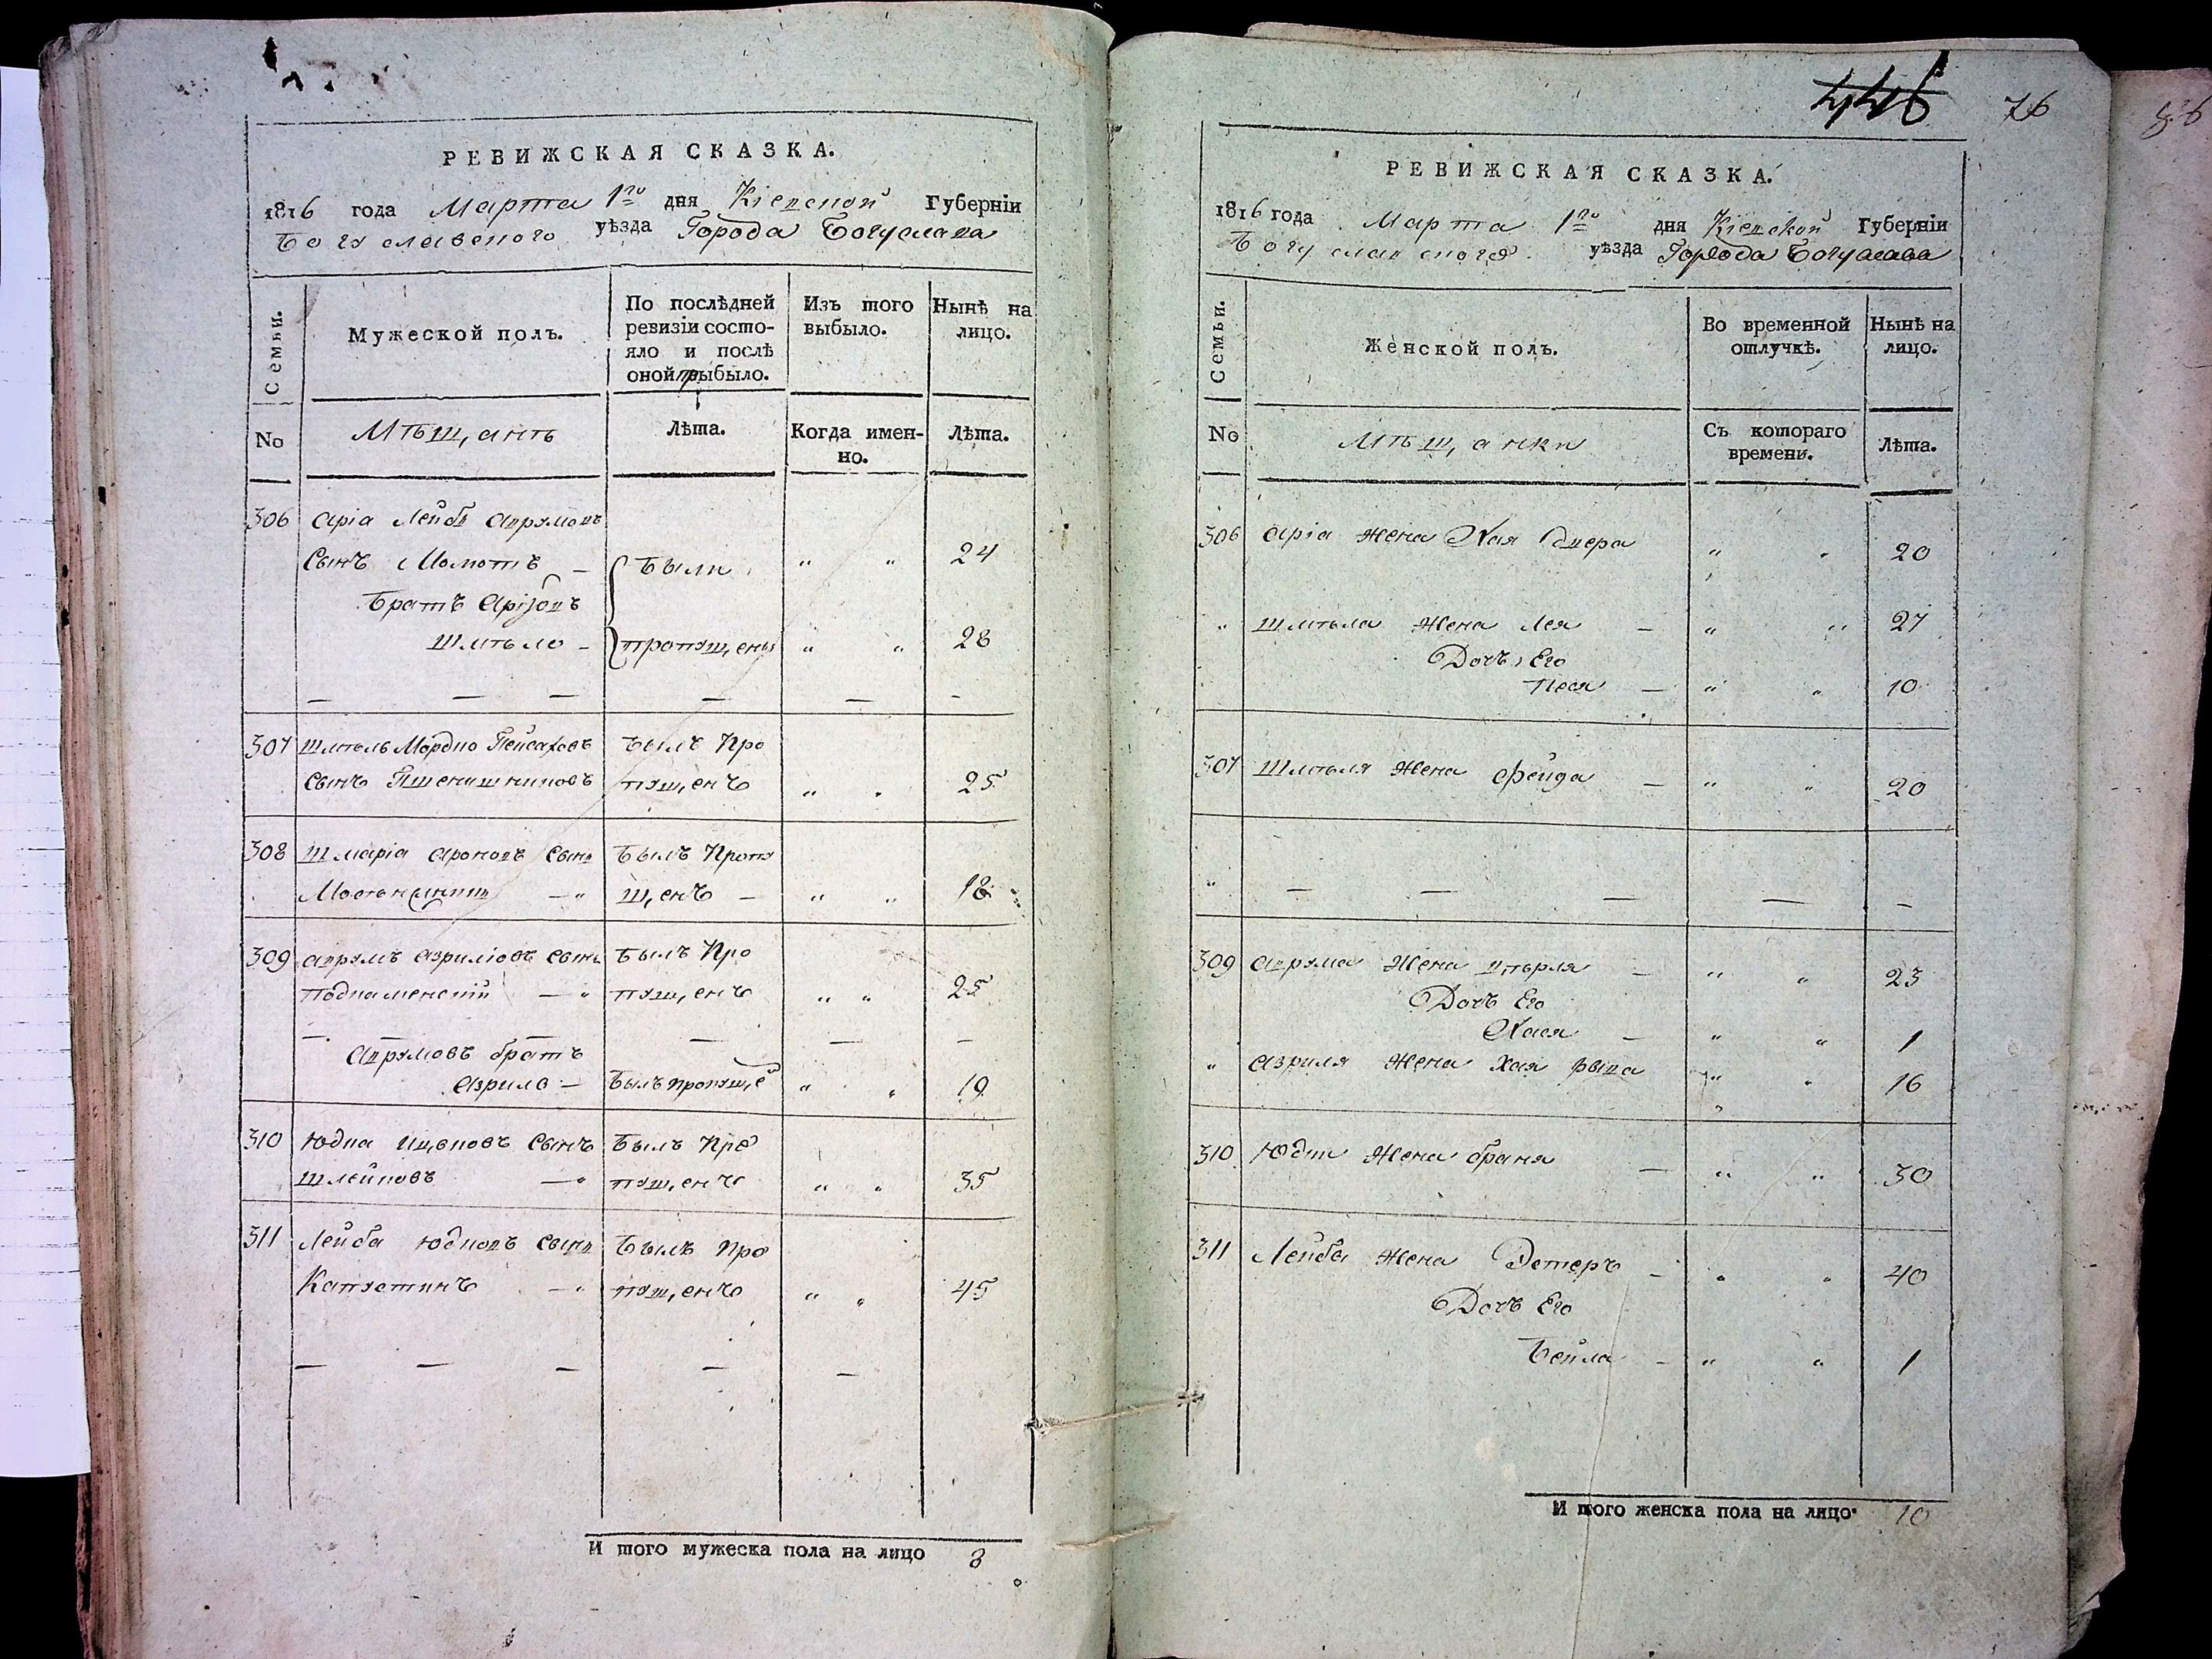 РЕВИЖСКАЯ СКАЗКА.
1816 года Марта 1го дня Кіевской Губерніи
Богуславского уѣзда Города Богуслава
Семьи.
Мужеской полъ.
По послѣдней ревизіи состо-
яло и послѣ
оной прыбыло.
Изъ того
выбыло.
Нынѣ на
лицо.
No
Мѣщанъ
Лѣта.
Когда имен-
но.
Лѣта.
306 Аріа Лейбъ Аврумовъ
Сынъ Молотъ — Были „ „ 24
Братъ Аріjовъ
Шмѣло - пропущены „ „ 28
307 Шмѣль Мордко Пейсаховъ Былъ Про
Сынъ Пшенишниковъ пущенъ „ „ 25
308 Шмаріа Ароновъ Сынъ Былъ Пропу
щенъ — „ „ 18
309 Аврумъ Азриліовъ Сынъ Былъ Про
Подкаменскій — „ пущенъ „ „ 25
Аврумовъ братъ
Азрило — Былъ пропуще „ „ 19
310 Юдка Ицковъ Сынъ Былъ Про
Шлейновъ — „ пущенъ „ „ 35
311 Лейба Юдковъ Сынъ Былъ Про
Капустинъ — „ пущенъ „ „ 45
И того мужеска пола на лицо 8
446 76
РЕВИЖСКАЯ СКАЗКА.
1816 года Марта 1го дня Кіевской Губерніи
Богуславского уѣзда Города Богуслава
Семьи.
Женской полъ.
Во временной
отлучкѣ.
Нынѣ на
лицо.
No
Мѣщанки
Съ котораго
времени.
Лѣта.
306 Аріа Жена Хая Двера „ „ 20
„ Шмѣла Жена Лея — „ „ 27
Дочь Его
Песя — „ „ 10
307 Шмѣля Жена Фейга — „ „ 20
309 Аврума Жена Пѣрля — „ „ 23
Дочъ Его
Хася — „ „ 1
„ Азриля Жена Хая Рыва „ „ 16
310 Юдки Жена Браня — „ „ 30
311 Лейба Жена Эстеръ — „ „ 40
Дочъ Его
Бейла — „ „ 1
И того женска пола на лицо 10